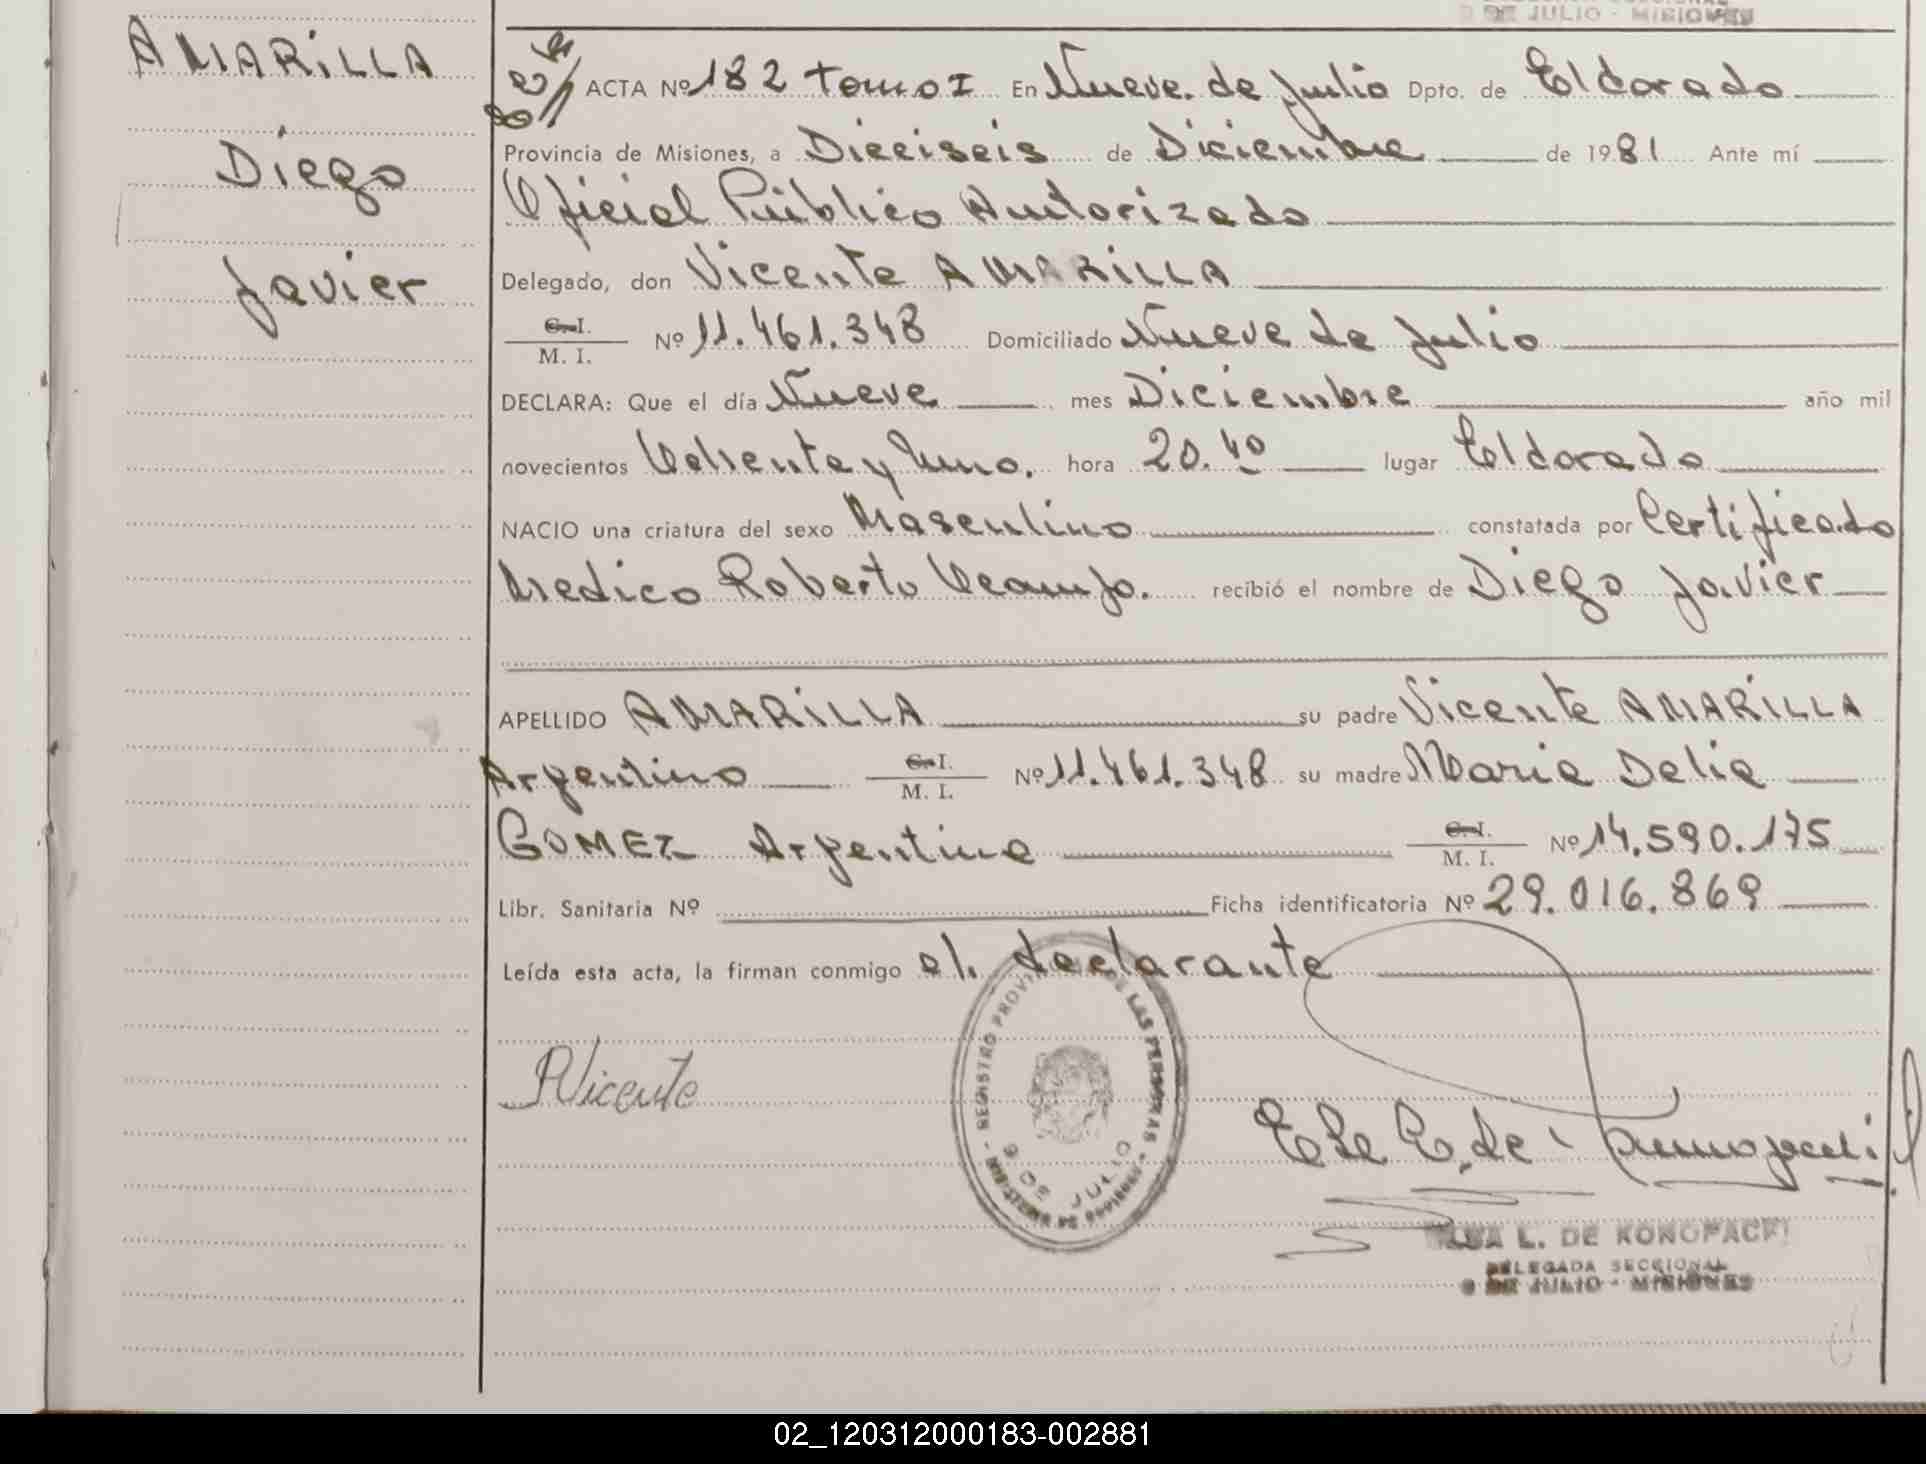 DE JULIO - MISIONES
AMARILLA
Diego
Javier
ACTA Nº 182 tomo I En Nueve de Julio Dpto. de Eldorado
Provincia de Misiones, a Dieciseis de Diciembre de 1981 Ante mí
Oficial Público Autorizado
Delegado, don Vicente AMARILLA
C. I.
M. I. Nº 11.461.348 Domiciliado Nueve de Julio
DECLARA: Que el día Nueve mes Diciembre año mil
novecientos Ochenta y Uno. hora 20.40 lugar Eldorado
NACIO una criatura del sexo Masculino constatada por Certificado
Medico Roberto Ocampo. recibió el nombre de Diego Javier
APELLIDO AMARILLA su padre Vicente AMARILLA
Argentino C. I. M. I. Nº 11.461.348 su madre Maria Delia
GOMEZ Argentina C. I. M. I. Nº 14.590.175
Libr. Sanitaria Nº Ficha identificatoria Nº 29.016.869
Leída esta acta, la firman conmigo el declarante
Vicente
REGISTRO DE LAS PERSONAS
9 DE JULIO
L. DE KONOPACKI
DELEGADA SECCIONAL
9 DE JULIO - MISIONES
02_120312000183-002881